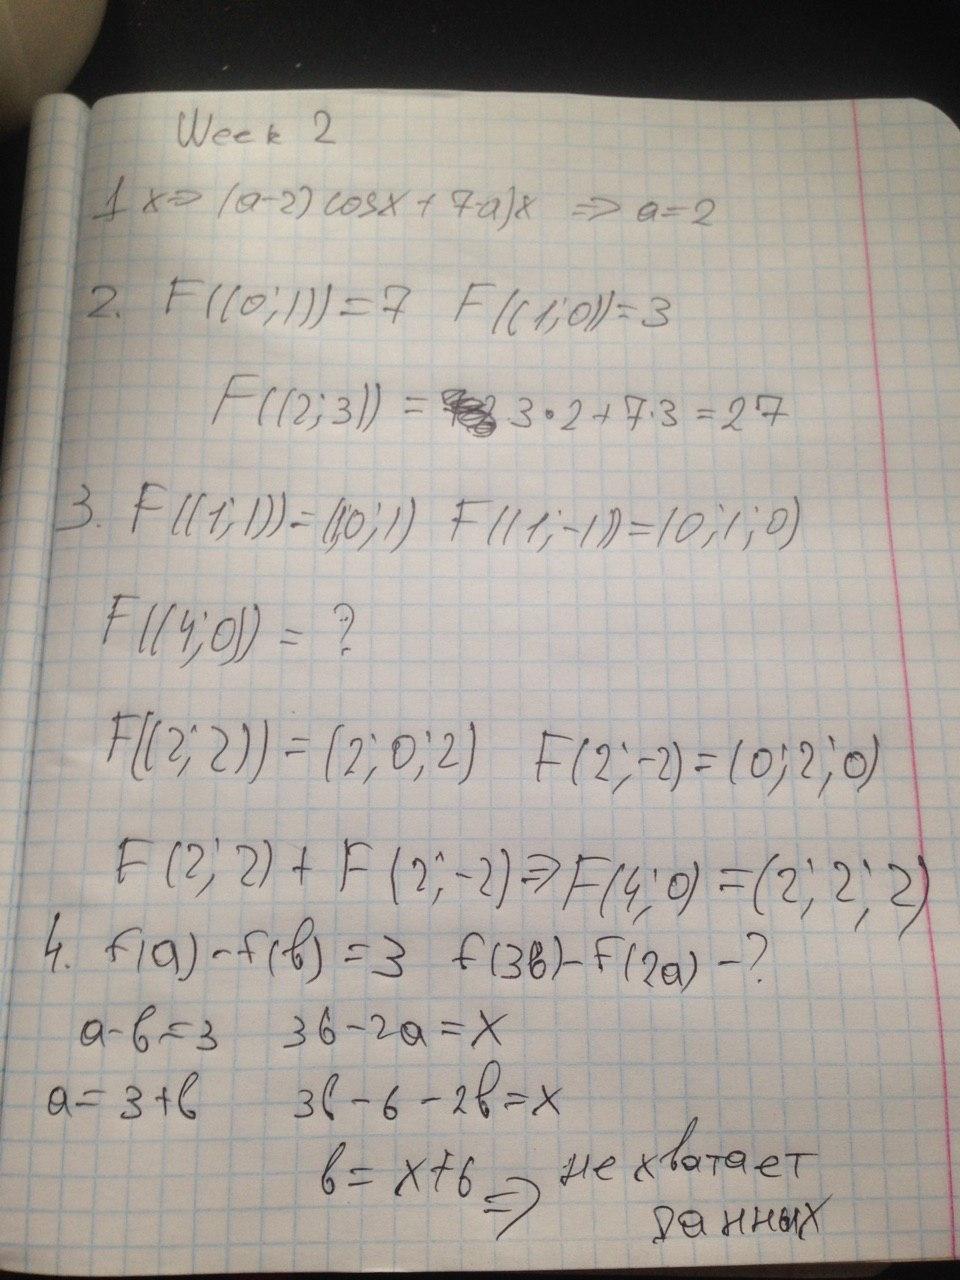 Week 2
1 x => (a-2) cosx + 7-a)x => a=2
2. F((0;1))=7 F((1;0))=3
F((2;3)) = 3•2+7·3=27
3. F((1;1))=(1;0;1) F((1;-1))=(0;1;0)
F((4;0)) = ?
F((2;2)) = (2;0;2) F(2;-2)=(0;2;0)
F(2;2) + F(2;-2) => F(4;0) =(2;2;2)
4. f(a)-f(b)=3 f(3b)-f(2a) -?
a-b=3 3b-2a=x
a= 3+b 3b-6-2b=x
b= x+6 => не хватает
данных